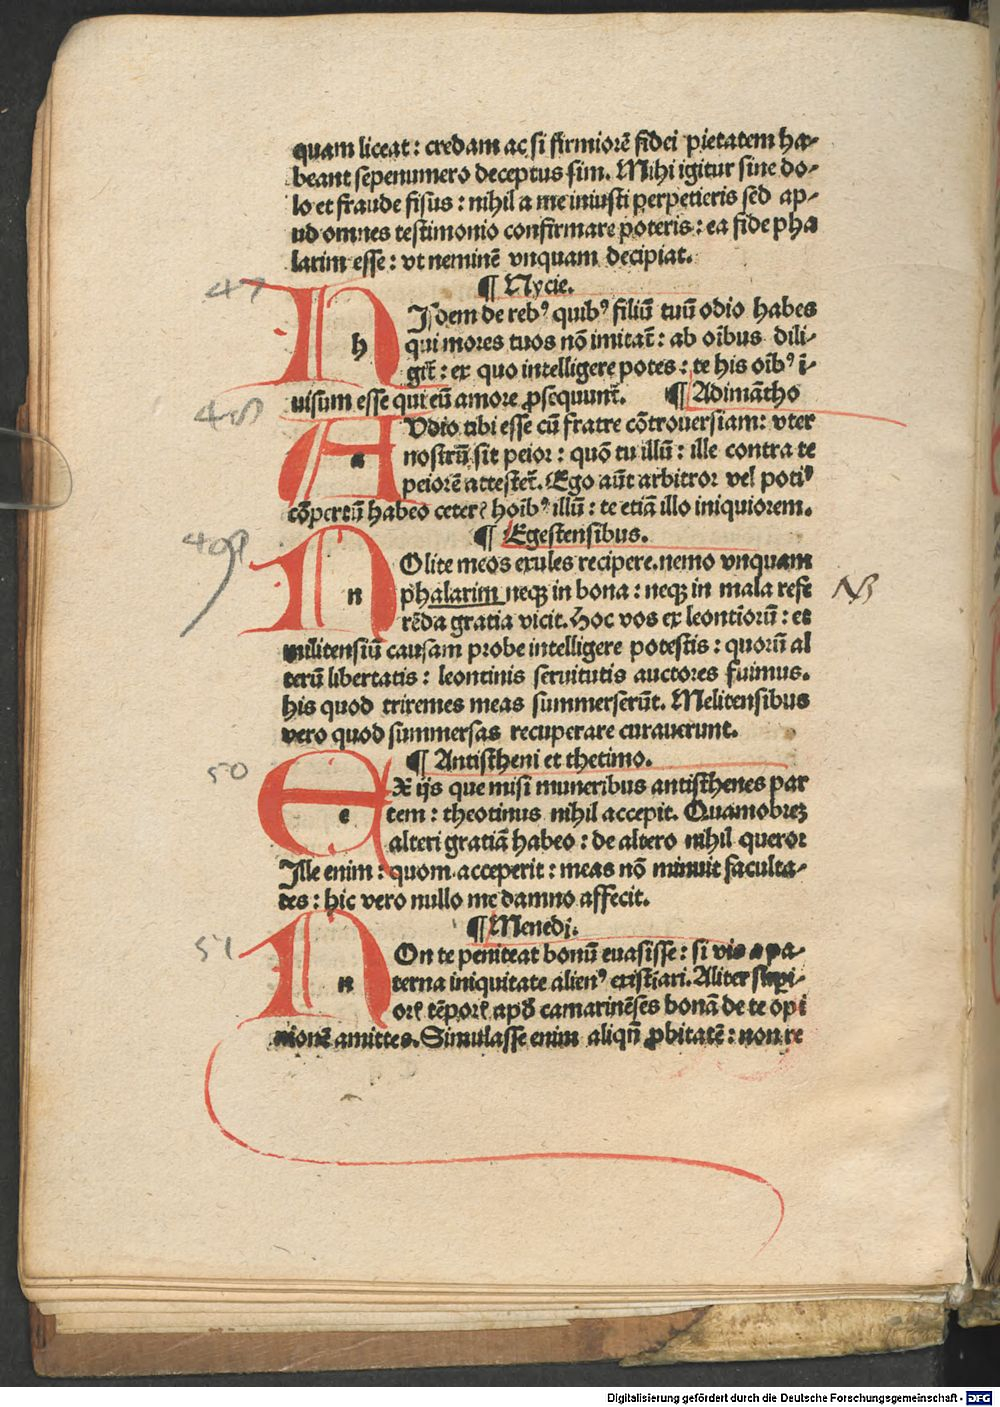 quam liceat : credam ac si firmiorē fidei pietatem ha-
beant sepenumero deceptus sim. Mihi igitur sine do-
lo et fraude fisus : nihil a me iniusti perpetieris sed ap-
ud omnes testimonio confirmare poteris : ea fide pha
larim esse : vt neminē vnquam decipiat.
47
¶ Nycie.
h Isdem de rebꝰ quibꝰ filiū tuū odio habes
qui mores tuos nō imitat̄ : ab oībus dili-
git̄ : ex quo intelligere potes : te his oībꝰ ī-
uisum esse qui eū amore ꝓsequunt̄. ¶ Adimātho
48
a Vdio tibi esse cū fratre cōtrouersiam : vter
nostrū sit peior : quō tu illū : ille contra te
peiorē attestet̄. Ego aūt arbitror vel potiꝰ
cōpertū habeo ceterꝭ hoībꝰ illū : te etiā illo iniquiorem.
¶ Egestensibus.
49
n Olite meos exules recipere. nemo vnquam
phalarim neqꝫ in bona : neqꝫ in mala refe
NB
rēda gratia vicit. Hoc vos ex leontiorū : et
militensiū causam probe intelligere potestis : quorū al
terū libertatis : leontinis seruitutis auctores fuimus.
his quod triremes meas summerserūt. Melitensibus
vero quod summersas recuperare curauerunt.
¶ Antistheni et thetimo.
50
e X ijs que misi muneribus antisthenes par
tem : theotinus nihil accepit. Quamobreꝫ
alteri gratiā habeo : de altero nihil queror
Ille enim : quom acceperit : meas nō minuit faculta-
tes : hic vero nullo me damno affecit.
¶ Menedi.
51
n On te peniteat bonū euasisse : si vis a pa-
terna iniquitate alienꝰ existiari. Aliter supi-
orꝭ tēporꝭ apđ camarinēses bonā de te opi
nionē amittes. Simulasse enim aliqn̄ ꝓbitatē : non re
Digitalisierung gefördert durch die Deutsche Forschungsgemeinschaft - DFG